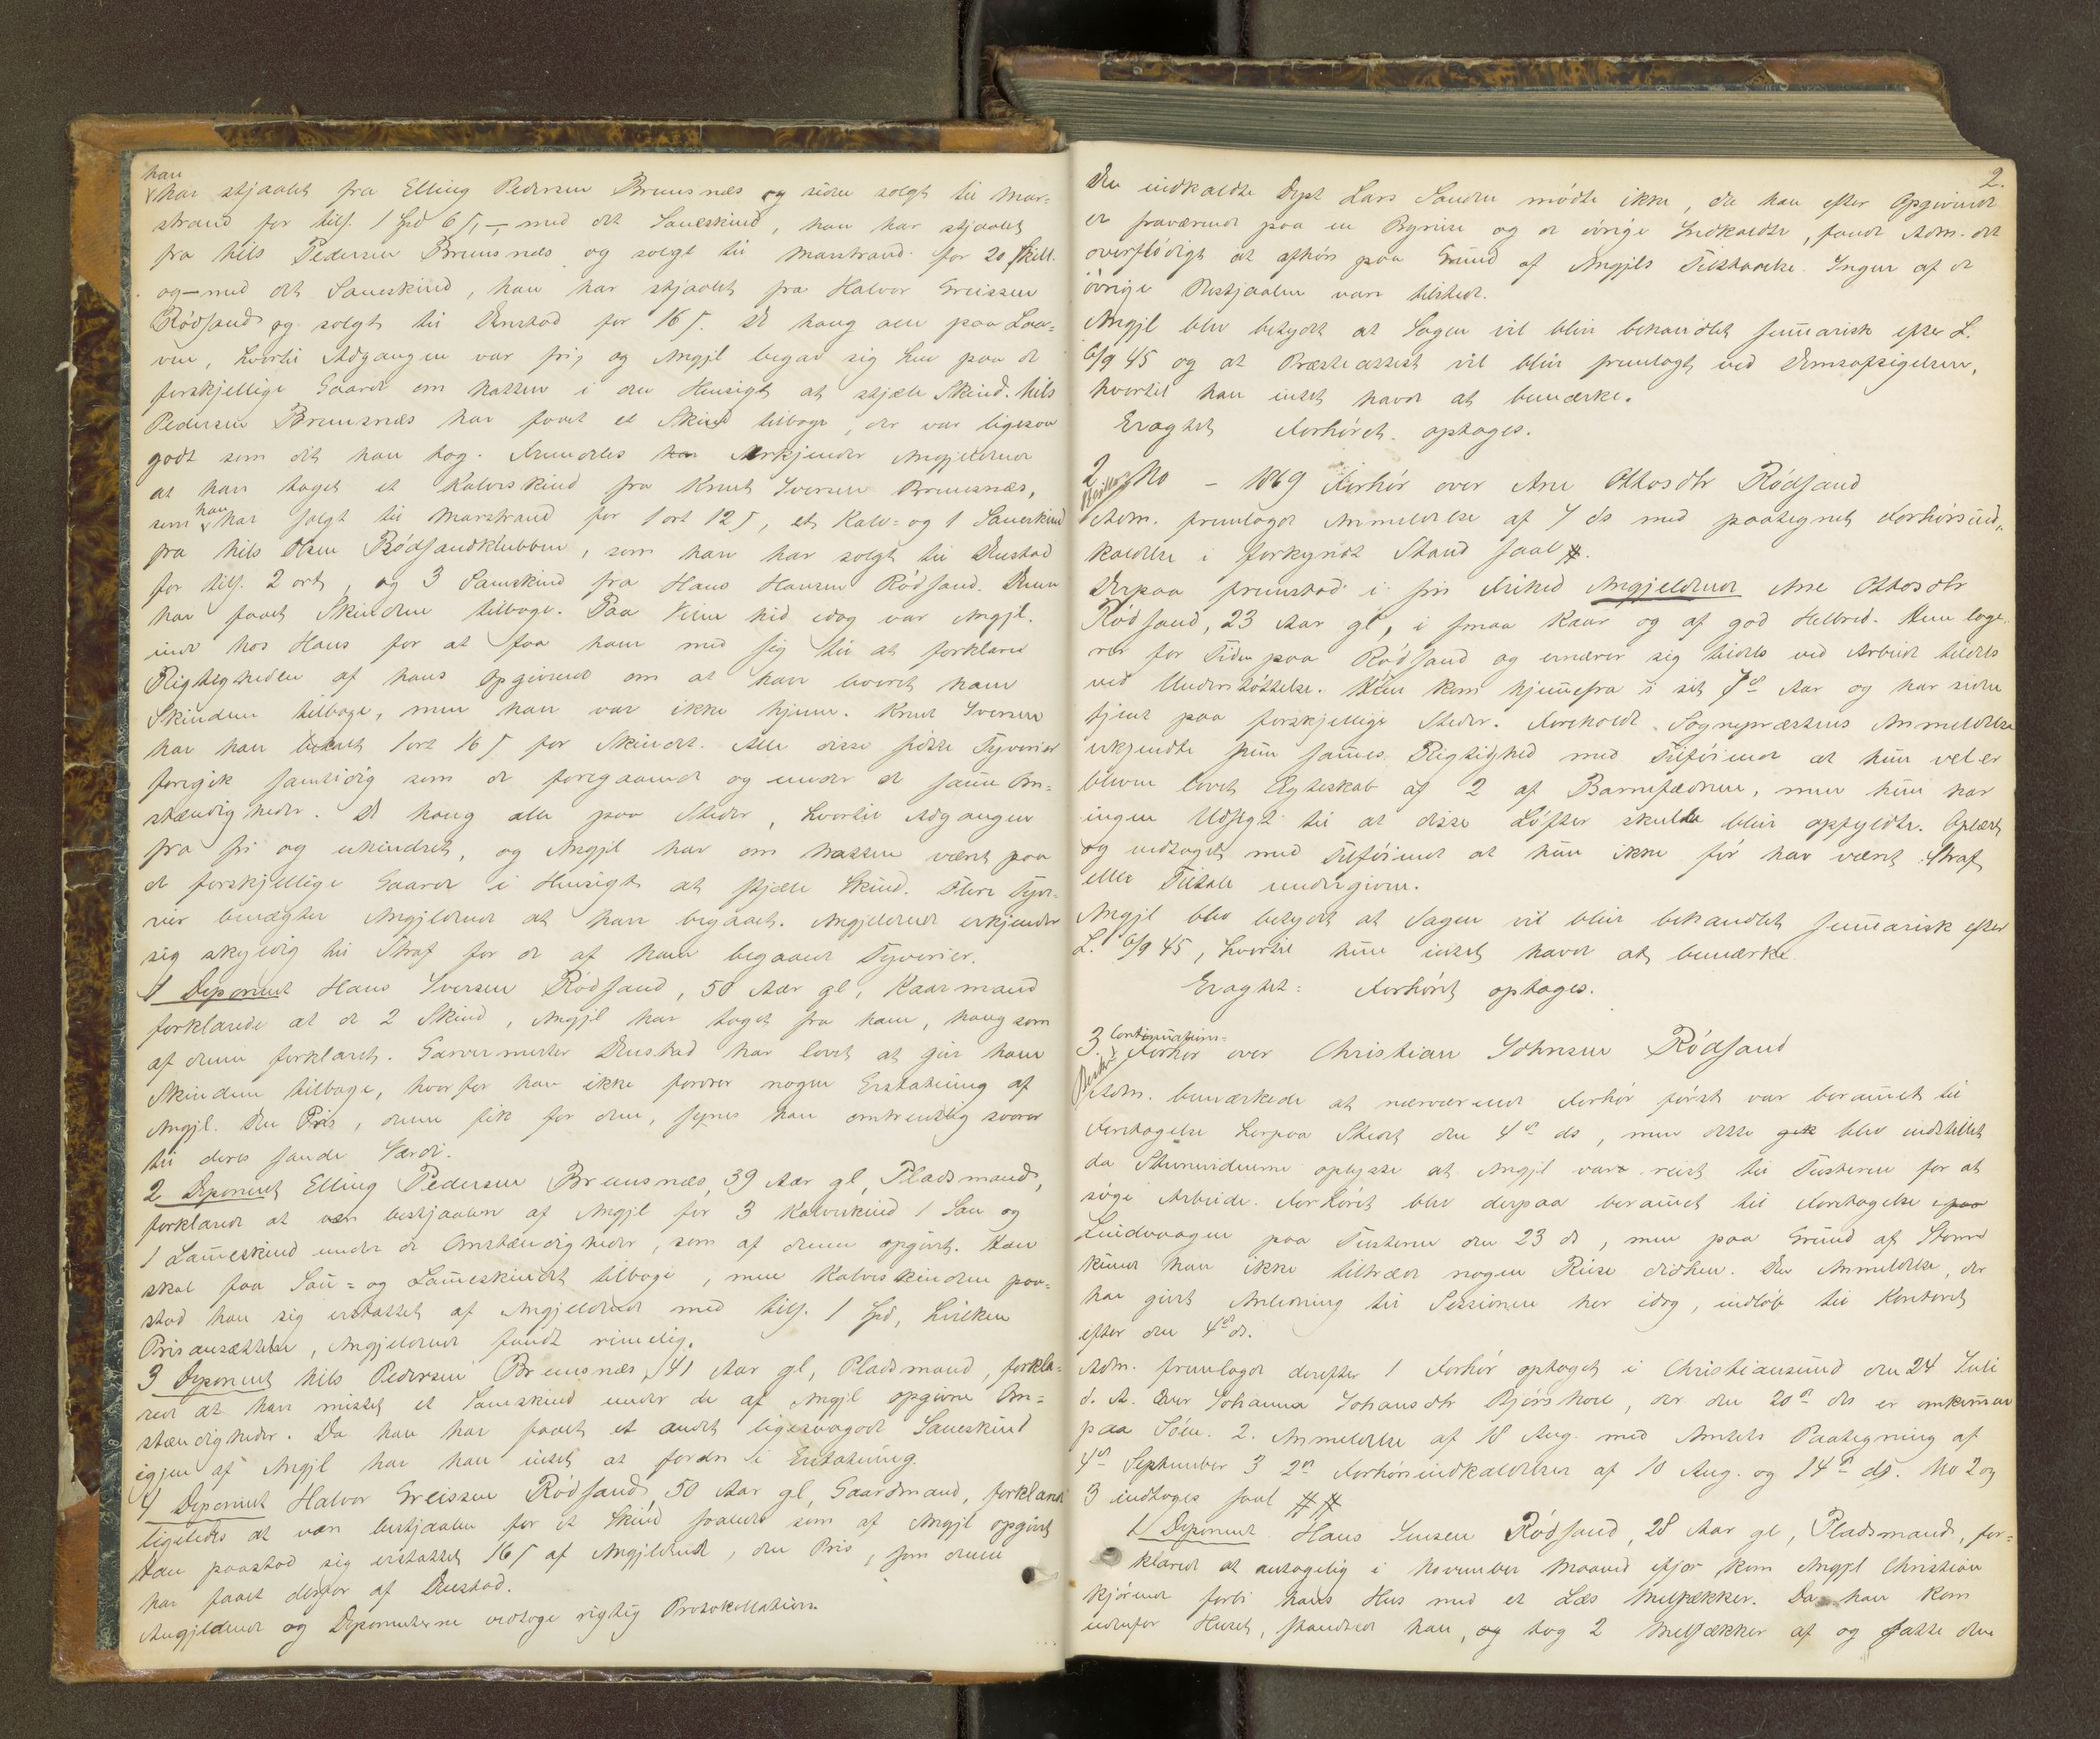 han
har stjaalet fra Elling Pedersen Bremsnæs og siden solgt til Mar=
strand for tils. 1 Spd 6 s, - med det Saueskind, han har stjaalet
fra Nils Pedersen Bremsnæs og solgt til Marstrand for 20 Skill.
og - med det Saueskind, han har stjaalet fra Halvor Greissen
Rødsand og solgt til Denstad for 16 s. De hang alle paa Laa=
ven, hvortil Adgangen var fri, og Angjl begav sig hen paa de
forskjellige Gaarde om Natten i den Hensigt at stjæle Skind. Nils
Pedersen Bremsnæs har faaet et Skind tilbage, der var ligesaa
godt som det han tog. Fremdeles erkjender Angjeldende
at have taget et Kalveskind fra Knut Iversen Bremsnæs,
som han har solgt til Marstrand for 1 ort 12 s, et Kalv= og 1 Saueskind
fra Nils Olsen Rødsandklubben, som han har solgt til Denstad
for tils. 2 ort, og 3 Saueskind fra Hans Hansen Rødsand. Denne
har faaet Skindene tilbage. Paa Veien hid idag var Angjl.
inde hos Hans for at faa ham med sig til at forklare
Rigtigheden af hans Opgivende om at have leveret ham
Skindene tilbage, men han var ikke hjemme. Knut Iversen
har han betalt 1 ort 16 s for Skindet. Alle disse sidste Tyverier
foregik samtidig som de foregaaende og under de samme Om=
stændigheder. De hang alle paa Steder, hvortil Adgangen
fra fri og uhindret, og Angjl har om Natten været paa
de forskjellige Gaarde i Hensigt at stjæle Skind. Flere Tyve=
rier benægter Angjeldende at have begaaet. Angjeldende erkjender
sig skyldig til Straf for de af ham begaaede Tyverier.
1 Deponent Hans Iversen Rødsand, 50 Aar gl, Kaarmand
forklarede at de 2 Skind, Angjl har taget fra ham, hang som
af denne forklaret. Garvermester Denstad har lovet at give ham
Skindene tilbage, hvorfor han ikke fordrer nogen Erstatning af
Angjl. Den Pris, denne fik for dem, synes han omtrentlig svarer
til deres sande Værdi.
2 Deponent Elling Pedersen Bremsnæs, 39 Aar gl, Pladsmand,
forklarede at være bestjaalen af Angjl for 3 Kalveskind 1 Sau og
1 Lammeskind under de Omstændigheder, som af denne opgivet. Han
skal faa Sau= og Lammeskindet tilbage, men Kalveskindene paa=
stod han sig erstattet af Angjeldende med tils. 1 Spd, hvilken
Prisansættelse, Angjeldende fandt rimelig.
3 Deponent Nils Pedersen Bremsnæs, 41 Aar gl, Pladsmand, forkla=
rede at have mistet et Saueskind under de af Angjl opgivne Om=
stændigheder. Da han har faaet et andet ligesaagodt Saueskind
igjen af Angjl har han intet at fordre i Erstatning.
4 Deponent Halvor Greissen Rødsand 50 Aar gl, Gaardmand, forklarede
ligeledes at være bestjaalen for et Skind saaledes som af Angjl opgivet
Han paastod sig erstattet 16 s af Angjeldende, den Pris, som denne
har faaet derfor af Denstad.
Angjeldende og Deponenterne vedtoge rigtig Protokollation.
2.
Den indkaldte Dept Lars Sanden mødte ikke, da han efter Opgivende
er fraværende paa en Byreise og de øvrige Indkaldte, fandt Adm. det
overflødigt at afhøre paa Grund af Angjls Tilstaaelse. Ingen af de
øvrige Bestjaalne vare tilstede.
Angjl blev betydet at Sagen vil blive behandlet summarisk efter L.
6/9 45 og at Præsteattest vil blive fremlagt ved Domsafsigelsen,
hvortil han intet havde at bemærke.
Eragtet Forhøret optages.
2 No - 1869 Forhør over Ane Ottosdtr Rødsand
Adm. fremlagde Anmeldelse af 7 ds med paategnet Forhørsind=
kaldelse i forkyndt Stand saal #.
Derpaa fremstod i fri Frihed Angjeldende Ane Ottosdtr
Rødsand, 23 Aar gl, i smaa Kaar og af god Helbred. Hun loge=
rer for Tiden paa Rødsand og ernærer sig tildels ved Arbeide tildels
ved Understøttelse. Hun kom hjemmefra i sit 7de Aar og har siden
tjent paa forskjellige Steder. Foreholdt Sognepræstens Anmeldelse
erkjendte hun sammes Rigtighed med Tilføiende at hun vel er
bleven lovet Ægteskab af 2 af Barnefædrene, men hun har
ingen Udsigt til at disse Løfter skulde blive opfyldte. Oplæst
og vedtaget med Tilføiende at hun ikke før har været Straf
eller Tiltale undergiven.
Angjl blev betydet at Sagen vil blive behandlet summarisk efter
L. 6/9 45, hvortil hun intet havde at bemærke
Eragtet: Forhøret optages.
3. Continuations=
Forhør over Christian Johnsen Rødsand
Adm. bemærkede at nærværende Forhør først var berammet til
Foretagelse herpaa Stedet den 4de ds, men dette blev indstillet
da Stevnevidnerne oplyste at Angjl var reist til Tusteren for at
søge Arbeide. Forhøret blev derpaa berammet til Foretagelse paa
Leidvaagen paa Tusteren den 23 ds, men paa Grund af Storm
kunde han ikke tiltræde nogen Reise didhen. Den Anmeldelse, der
har givet Anledning til Sessionen her idag, indløb til Kontoret
efter den 4de ds.
Adm. fremlagde derefter 1 Forhør optaget i Christiansund den 24 Juli
d. A. over Johanna Johansdtr Bjørshoel, der den 20de ds er omkommen
paa Søen. 2. Anmeldelse af 18 Aug. med Amtets Paategning af
4de September 3 2de Forhørsindkaldelser af 10 Aug. og 14de ds. No 2 og
3 indtages saal # #
1 Deponent Hans Jensen Rødsand, 28 Aar gl, Pladsmand, for=
klarede at antagelig i November Maaned ifjor kom Angjl Christian
kjørende forbi hans Hus med et Læs Melsækker. Da han kom
udenfor Huset, standsede han, og tog 2 Melsækker af og satte dem